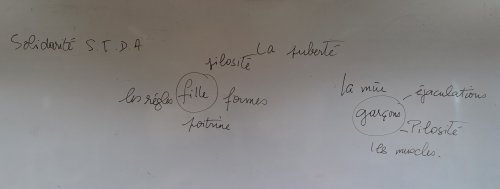 Solidarité S.T.D.A
La puberté
pilosité
les règles fille formes
poitrine
La mûe
éjaculations
garçons
Pilosité
les muscles.